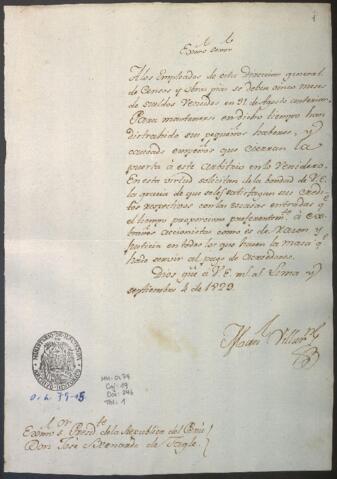 1
Exmo Señor
A los Empleados de esta Direccion general
de Censos y obras pias se deben cinco meses
de sueldos vencidos en 31 de Agosto
Para mantenerse en dicho tiempo han
distrahido sus pequeños haberes, y
causado empeños que cierran la
puerta á este arbitrio en lo venidero.
En esta virtud solicitan de la bondad de V.E.
la gracia de que se les satisfagan sus credi-
tos respectivos con las escasas entradas q.
el tiempo proporciona preferentem.te á
accionistas como es de razon y
justicia en todos los que hacen la masa q.
ha de servir al pago de acredores.
Dios gue á V.E. m.s a.s Lima y
septiembre 4 de 1823.
MINISTERIO DE HACIENDA
ARCHIVO HISTORICO
O.L. 79-15
MH-0179
Caj: 19
Doc: 246
Fol: 1
Exmo S. Presid.te de la Republica del Perú
Don José Bernardo de Tagle.